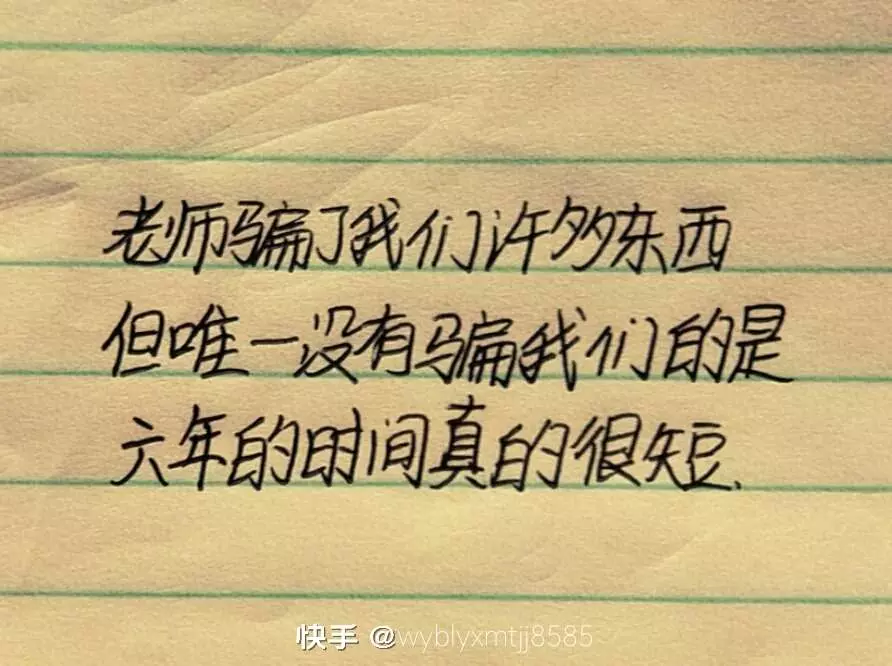 老师骗了我们许多东西
但唯一没有骗我们的是
六年的时间真的很短.
快手 @wyblyxmtjj8585